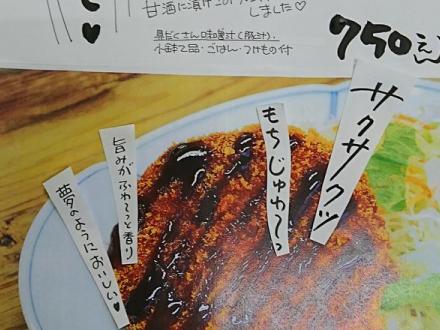 しました♡
具だくさん味噌汁(豚汁)、
小鉢2品・ごはん・つけもの付
750えん
サクサクッ
もちじゅわ〜っ
旨みがふわ〜っと香り
夢のようにおいしい♥